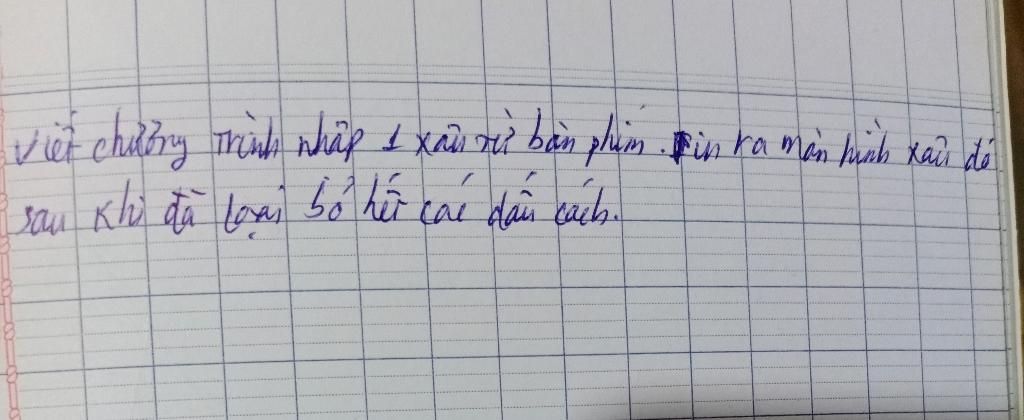 Viết chương trình nhập 1 xâu từ bàn phím. in ra màn hình xâu đó
sau khi đã loại bỏ hết các dấu cách.